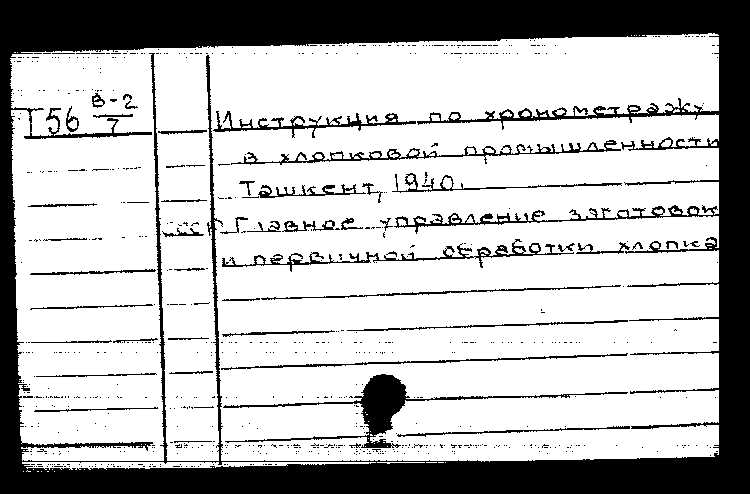 Т56 В-2/7
Инструкция по хронометражу
в хлопковой промышленности
Ташкент, 1940.
СССР. Главное управление заготовок
и первичной обработки хлопка